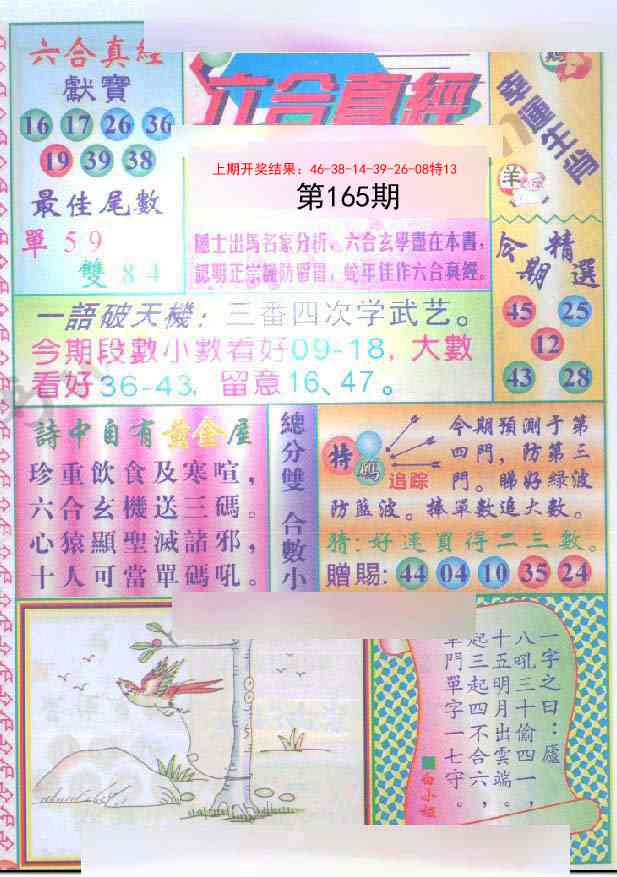 六合真經
獻寶
16 17 26 36
19 39 38
最佳尾數
單 5 9
雙 8 4
六合真經
上期开奖结果：46-38-14-39-26-08特13
第165期
隱士出馬名家分析，六合玄學盡在本書，
認明正宗謹防冒冒，蛇年佳作六合真經。
幸運生肖
羊
今期精選
45 25
12
43 28
一語破天機：三番四次学武艺。
今期段數小數看好09-18，大數
看好36-43，留意16、47。
詩中自有黃金屋
珍重飲食及寒喧，
六合玄機送三碼。
心猿顯聖滅諸邪，
十人可當單碼吼。
總分雙 合數小
特碼
追踪
今期預測于第
四門，防第三
門。睇好綠波
防藍波。捧單數追大數。
猜：好运買得二三數。
贈賜：44 04 10 35 24
一字之曰：廬
八吼三十偷四一，
十五明月出雲端。
起三起四不合六，
單門單字一七守。
白小姐